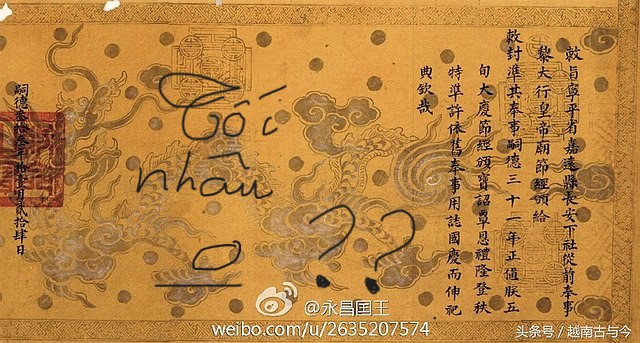 敕旨寧平省嘉遠縣長安下社從前奉事
黎大行皇帝廟節經頒給
敕封準其奉事嗣德三十一年正值朕五
旬大慶節經頒寶詔覃恩禮隆登秩
特準許依舊奉事用誌國慶而伸祀
典欽哉
嗣德叁拾叁年拾壹月貳拾肆日
Tối
nhâu
o ??
@永昌国王
weibo.com/u/2635207574
头条号/越南古与今